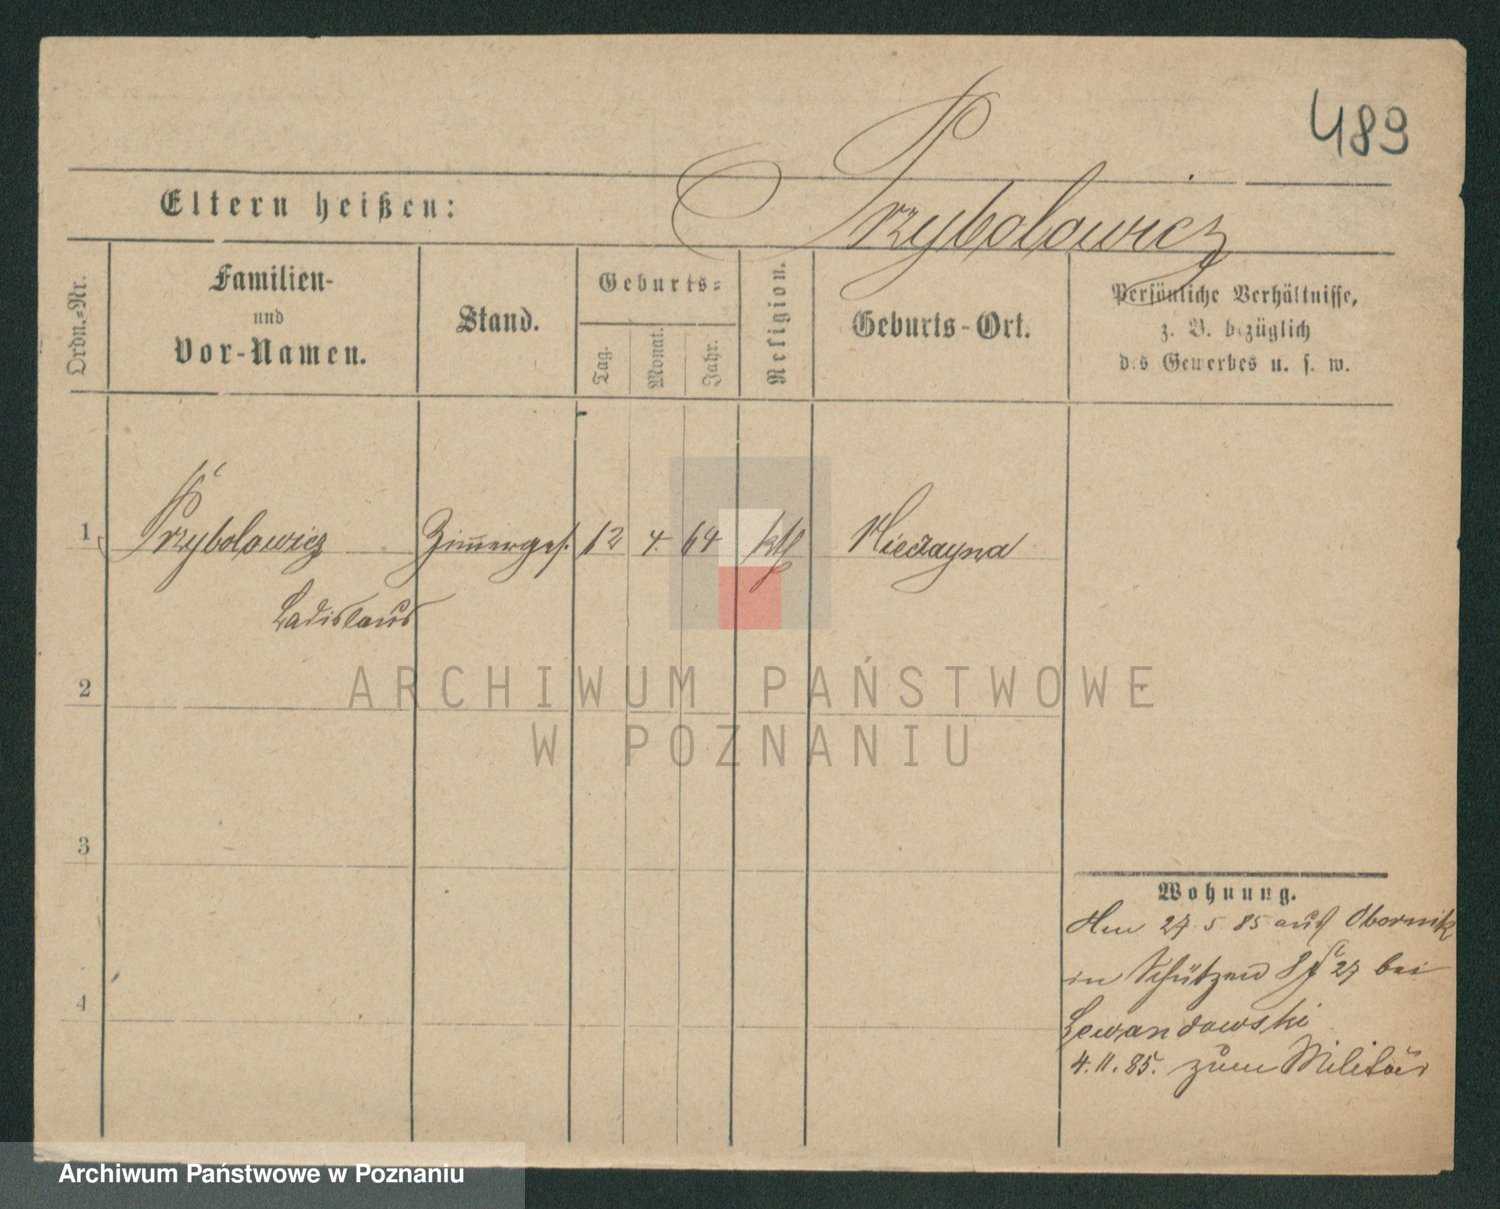 489
Przybolowicz
Eltern heißen:
Ordn.=Nr.
Familien-
und
Vor-Namen.
Stand.
Geburts=
Tag.
Monat.
Jahr.
Religion.
Geburts-Ort.
Persönliche Verhältnisse,
z. B. bezüglich
des Gewerbes u. s. w.
1
Przybolowicz
Zim̅erges.
12
4.
64
kth
Nieczayna
Ladislaus
2
3
4
Wohnung.
27. 5 85 aus Obornik
in Schützen 27 bei
Lewandowski
4. 11. 85. zum Militär
ARCHIWUM PAŃSTWOWE
W POZNANIU
Archiwum Państwowe w Poznaniu